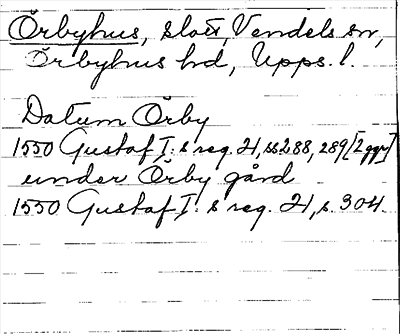 Örbyhus, slott, Vendels sn,
Örbyhus hd, Upps. l.
Datum Örby
1550 Gustaf I:s reg. 21, ss 288, 289 [2 ggr]
under Örby gård
1550 Gustaf I:s reg. 21, s. 304.